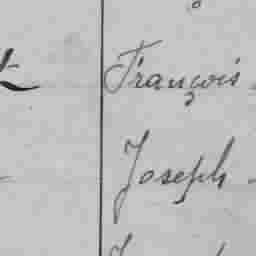 François
Joseph